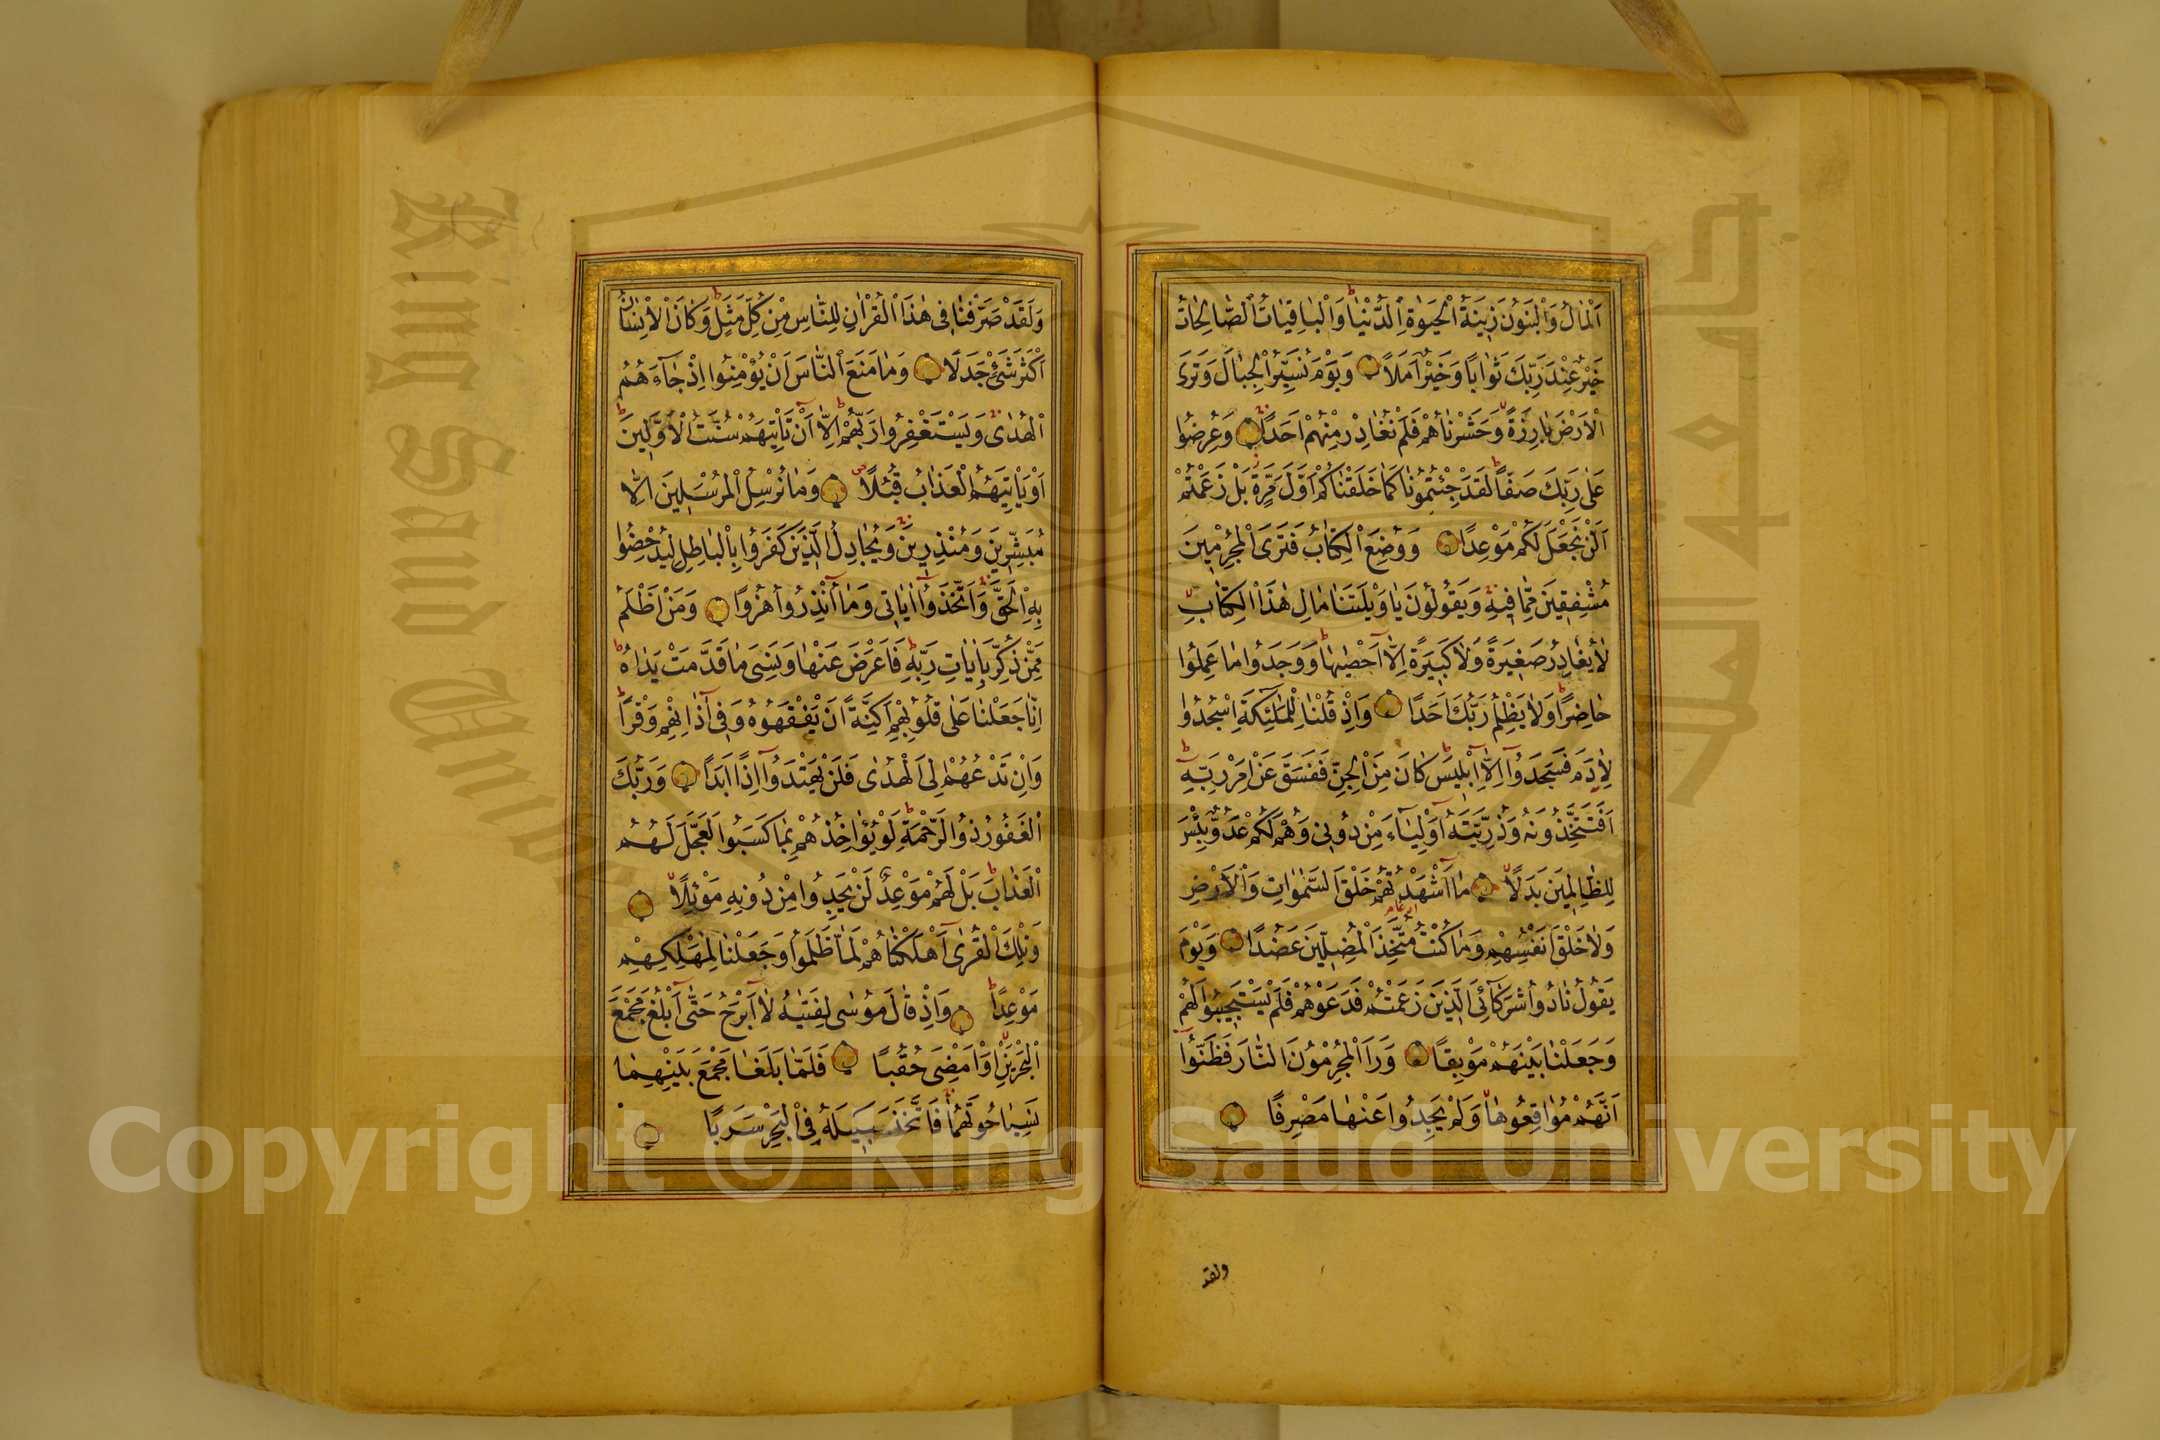 اَلْمَالُ وَالْبَنُونَ زِينَةُ الْحَيٰوةِ الدُّنْيَا وَالْبَاقِيَاتُ الصَّالِحَاتُ
خَيْرٌ عِنْدَ رَبِّكَ ثَوَابًا وَخَيْرٌ اَمَلًا وَيَوْمَ نُسَيِّرُ الْجِبَالَ وَتَرَى
الْاَرْضَ بَارِزَةً وَحَشَرْنَاهُمْ فَلَمْ نُغَادِرْ مِنْهُمْ اَحَدًا وَعُرِضُوا
عَلٰى رَبِّكَ صَفًّا لَقَدْ جِئْتُمُونَا كَمَا خَلَقْنَاكُمْ اَوَّلَ مَرَّةٍ بَلْ زَعَمْتُمْ
اَلَّنْ نَجْعَلَ لَكُمْ مَوْعِدًا وَوُضِعَ الْكِتَابُ فَتَرَى الْمُجْرِمِينَ
مُشْفِقِينَ مِمَّا فِيهِ وَيَقُولُونَ يَا وَيْلَتَنَا مَالِ هٰذَا الْكِتَابِ
لَا يُغَادِرُ صَغِيرَةً وَلَا كَبِيرَةً اِلَّا اَحْصٰيهَا وَوَجَدُوا مَا عَمِلُوا
حَاضِرًا وَلَا يَظْلِمُ رَبُّكَ اَحَدًا وَاِذْ قُلْنَا لِلْمَلٰئِكَةِ اسْجُدُوا
لِاٰدَمَ فَسَجَدُوا اِلَّا اِبْلِيسَ كَانَ مِنَ الْجِنِّ فَفَسَقَ عَنْ اَمْرِ رَبِّهِ
اَفَتَتَّخِذُونَهُ وَذُرِّيَّتَهُ اَوْلِيَاءَ مِنْ دُونِي وَهُمْ لَكُمْ عَدُوٌّ بِئْسَ
لِلظَّالِمِينَ بَدَلًا مَا اَشْهَدْتُهُمْ خَلْقَ السَّمٰوَاتِ وَالْاَرْضِ
وَلَا خَلْقَ اَنْفُسِهِمْ وَمَا كُنْتُ مُتَّخِذَ الْمُضِلِّينَ عَضُدًا وَيَوْمَ
يَقُولُ نَادُوا شُرَكَائِيَ الَّذِينَ زَعَمْتُمْ فَدَعَوْهُمْ فَلَمْ يَسْتَجِيبُوا لَهُمْ
وَجَعَلْنَا بَيْنَهُمْ مَوْبِقًا وَرَاَ الْمُجْرِمُونَ النَّارَ فَظَنُّوا
اَنَّهُمْ مُوَاقِعُوهَا وَلَمْ يَجِدُوا عَنْهَا مَصْرِفًا
ولقد
وَلَقَدْ صَرَّفْنَا فِي هٰذَا الْقُرْاٰنِ لِلنَّاسِ مِنْ كُلِّ مَثَلٍ وَكَانَ الْاِنْسَانُ
اَكْثَرَ شَيْءٍ جَدَلًا وَمَا مَنَعَ النَّاسَ اَنْ يُؤْمِنُوا اِذْ جَاءَهُمُ
الْهُدٰى وَيَسْتَغْفِرُوا رَبَّهُمْ اِلَّا اَنْ تَاْتِيَهُمْ سُنَّتُ الْاَوَّلِينَ
اَوْ يَاْتِيَهُمُ الْعَذَابُ قُبُلًا وَمَا نُرْسِلُ الْمُرْسَلِينَ اِلَّا
مُبَشِّرِينَ وَمُنْذِرِينَ وَيُجَادِلُ الَّذِينَ كَفَرُوا بِالْبَاطِلِ لِيُدْحِضُوا
بِهِ الْحَقَّ وَاتَّخَذُوا اٰيَاتِي وَمَا اُنْذِرُوا هُزُوًا وَمَنْ اَظْلَمُ
مِمَّنْ ذُكِّرَ بِاٰيَاتِ رَبِّهِ فَاَعْرَضَ عَنْهَا وَنَسِيَ مَا قَدَّمَتْ يَدَاهُ
اِنَّا جَعَلْنَا عَلٰى قُلُوبِهِمْ اَكِنَّةً اَنْ يَفْقَهُوهُ وَفِي اٰذَانِهِمْ وَقْرًا
وَاِنْ تَدْعُهُمْ اِلَى الْهُدٰى فَلَنْ يَهْتَدُوا اِذًا اَبَدًا وَرَبُّكَ
الْغَفُورُ ذُو الرَّحْمَةِ لَوْ يُؤَاخِذُهُمْ بِمَا كَسَبُوا لَعَجَّلَ لَهُمُ
الْعَذَابَ بَلْ لَهُمْ مَوْعِدٌ لَنْ يَجِدُوا مِنْ دُونِهِ مَوْئِلًا
وَتِلْكَ الْقُرٰى اَهْلَكْنَاهُمْ لَمَّا ظَلَمُوا وَجَعَلْنَا لِمَهْلِكِهِمْ
مَوْعِدًا وَاِذْ قَالَ مُوسٰى لِفَتٰيهُ لَا اَبْرَحُ حَتّٰى اَبْلُغَ مَجْمَعَ
الْبَحْرَيْنِ اَوْ اَمْضِيَ حُقُبًا فَلَمَّا بَلَغَا مَجْمَعَ بَيْنِهِمَا
نَسِيَا حُوتَهُمَا فَاتَّخَذَ سَبِيلَهُ فِي الْبَحْرِ سَرَبًا
King Saud University
Copyright © King Saud University